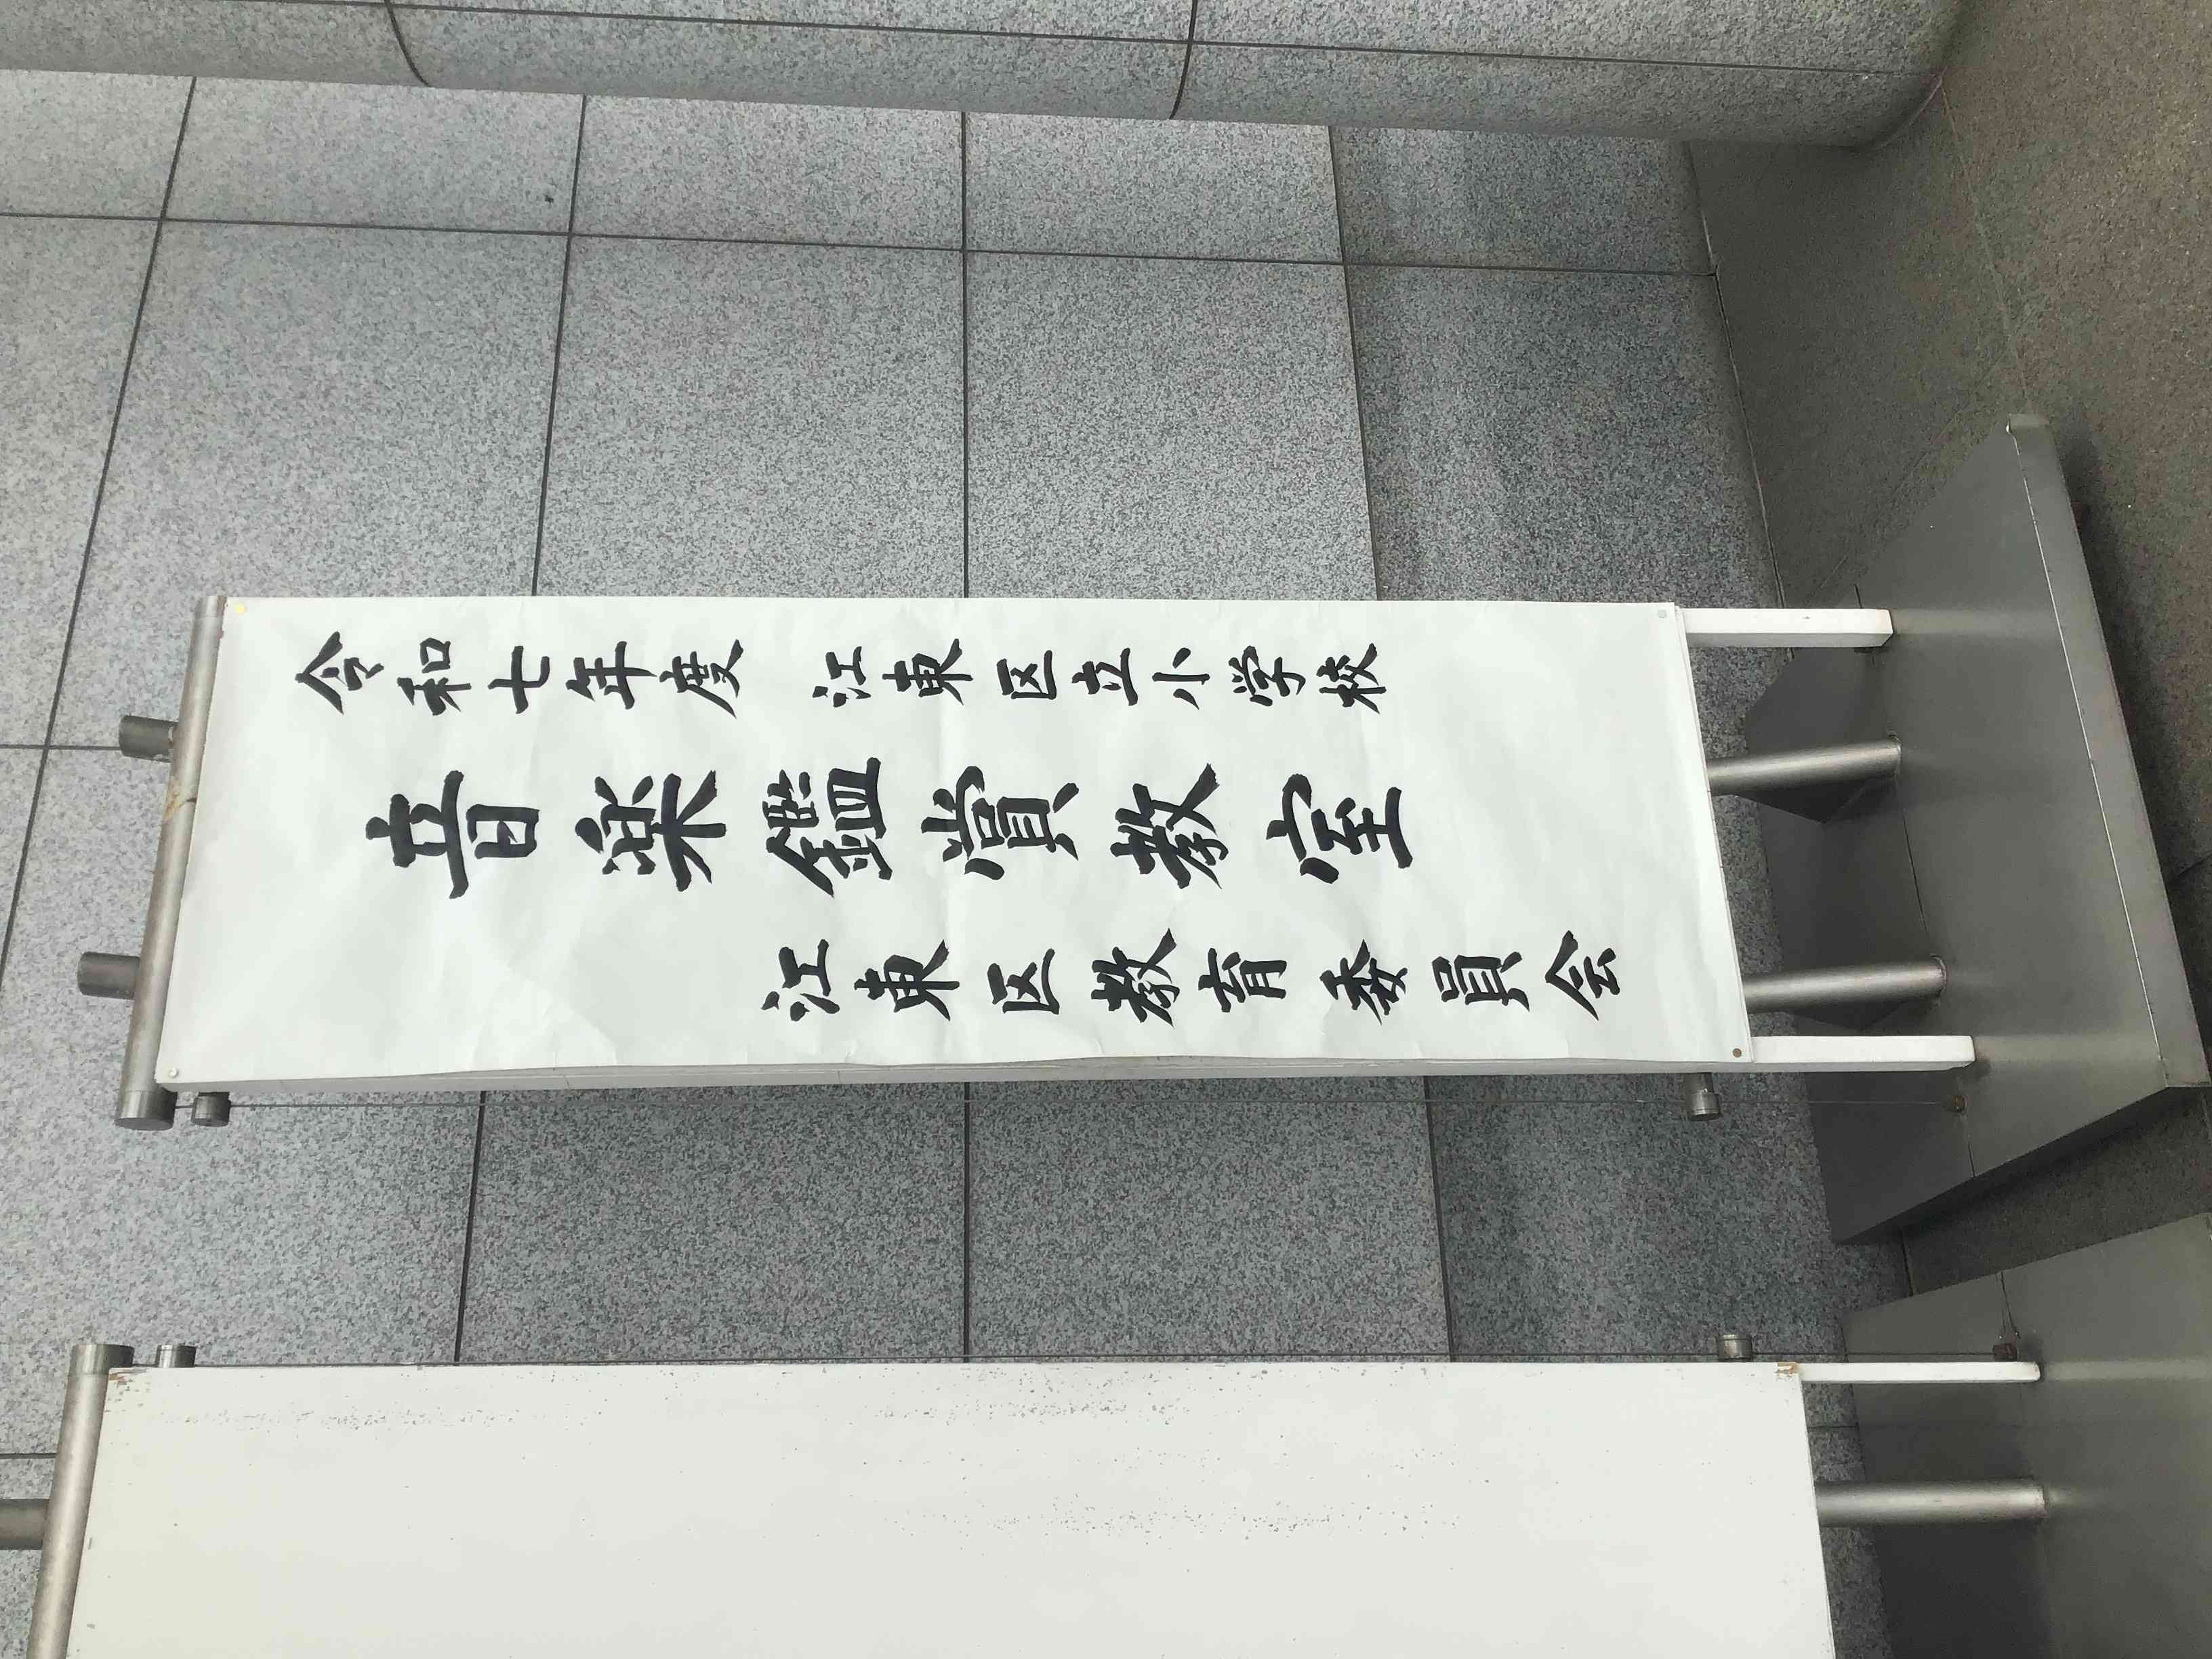 令和七年度 江東区立小学校
音楽鑑賞教室
江東区教育委員会